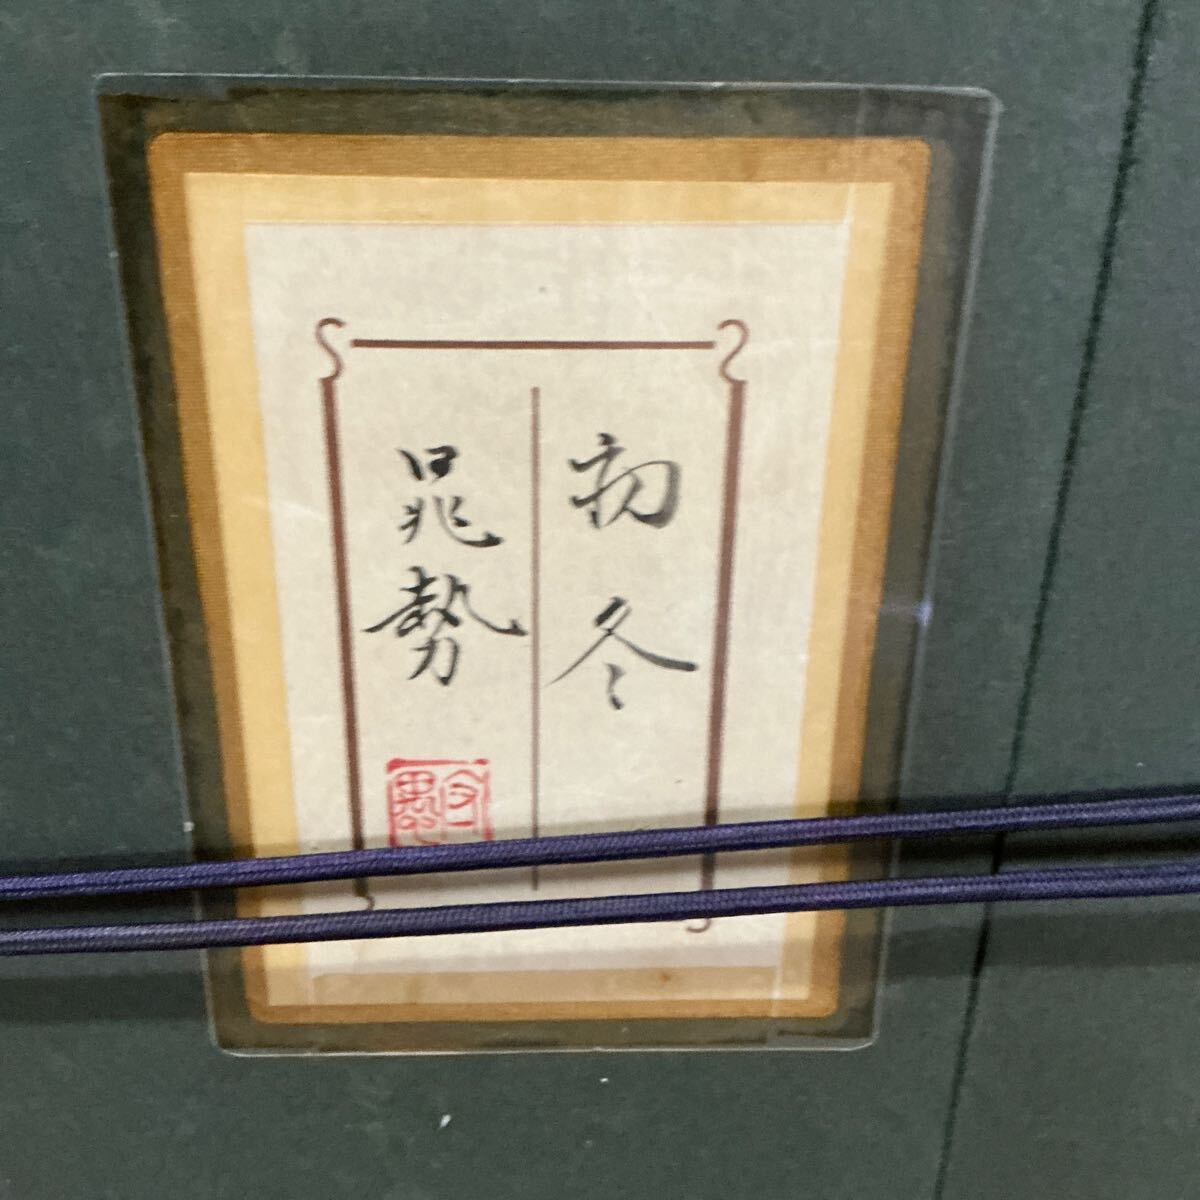 初冬
晁勢